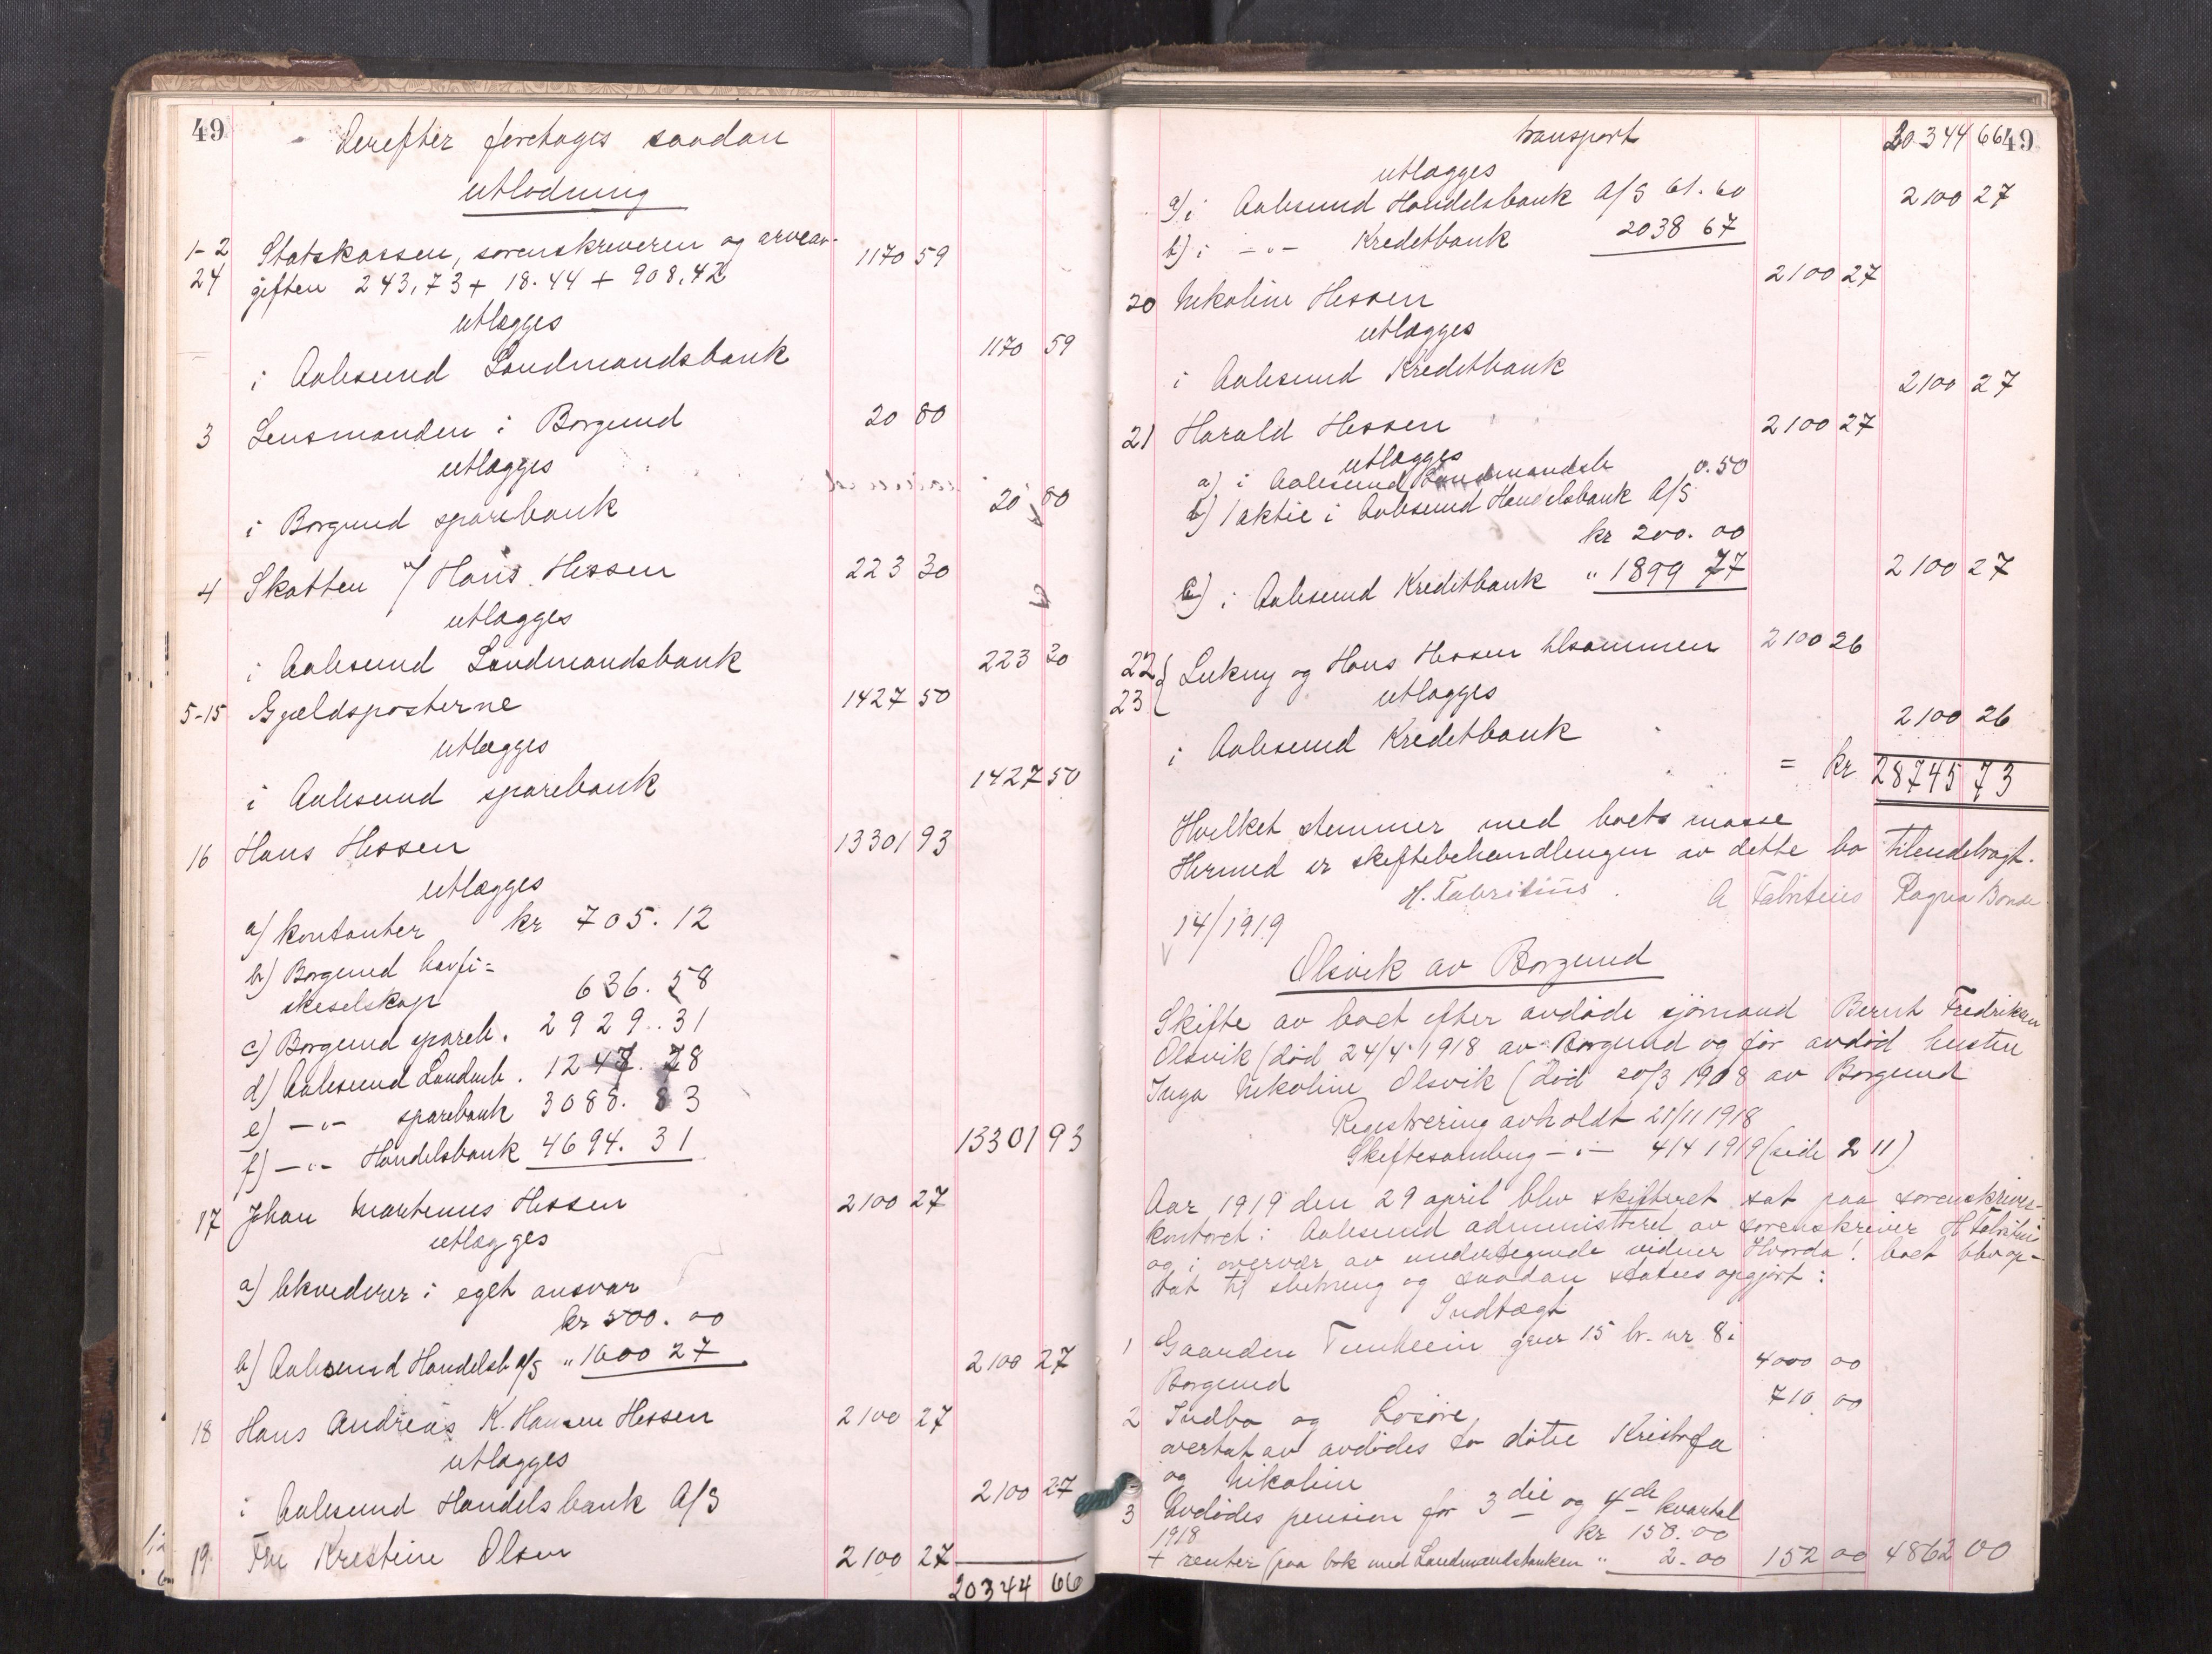 49
Derefter foretages saadan
utlodning
1-2 Statskassen, sorenskriveren og arveav- 1170 59
24 giften 243,73 + 18.44 + 908,42
utlægges
i Aalesund Landmandsbank 1170 59
3 Lensmanden i Borgund 20 80
utlægges
i Borgund sparebank 20 80
4 Skatten Hans Hessen 223 30
utlægges
i Aalesund Landmandsbank 223 30
5-15 Gjældsposterne 1427 50
utlægges
i Aalesund sparebank 1427 50
16 Hans Hessen 13301 93
utlægges
a) kontanter kr 705.12
b) Borgund havfi=
skeselskap 636.58
c) Borgund spareb. 2929.31
d) Aalesund Landmb. 1247.78
e) —"— sparebank 3088.83
f) —"— Handelsbank 4694.31 13301 93
17 Johan Martinus Hessen 2100 27
utlægges
a) likviderer i eget ansvar
kr 500.00
b) Aalesund Handelsb A/S " 1600 27 2100 27
18 Hans Andreas K. Hansen Hessen 2100 27
utlægges
i Aalesund Handelsbank A/S 2100 27
19 Fru Kristine Olsen 2100 27
20344 66
transport 20344 66 49
utlægges
a) i Aalesund Handelsbank A/S 61.60 2100 27
b) i —"— Kreditbank 2038 67
20 Nikoline Hessen 2100 27
utlægges
i Aalesund Kreditbank 2100 27
21 Harald Hessen 2100 27
utlægges
a) i Aalesund Landmandsb 0.50
b) 1 aktie i Aalesund Handelsbank A/S
kr 200.00
c) i Aalesund Kreditbank " 1899 77 2100 27
22 Hans Hessen tilsammen 2100 26
23 utlægges
i Aalesund Kreditbank 2100 26
= kr 28745 73
Hvilket stemmer med boets masse
Hermed er skiftebehandlingen av dette bo tilendebragt.
H. Fabritius. A Fabritius Ragna Bonde
14/1919
Olsvik av Borgund
Skifte av boet efter avdøde sjømand Bernt Fredriksen
Olsvik (død 24/4 1918 av Borgund og før avdød hustru
Inga Nikoline Olsvik (død 20/3 1908 av Borgund
Registrering avholdt 21/11 1918
Skiftesamling —"— 4/4 1919 (side 211)
Aar 1919 den 29 april blev skifteret sat paa sorenskriver-
kontoret i Aalesund administreret av sorenskriver H Fabritius
og i overvær av undertegnede vidner Hvorda! boet blev op-
tat til slutning og saadan status opgjort:
Indtægt
1 Gaarden gnr 15 br. nr 8 i
Borgund 4000 00
2 Indbo og Løsøre, 710 00
overtat av avdødes to døtre Kristofa
og Nikoline
3 Avdødes pension for 3die og 4de kvartal
1918 kr 150.00
+ renter (paa bok med Landmandsbanken " 2.00 152 00 4862 00